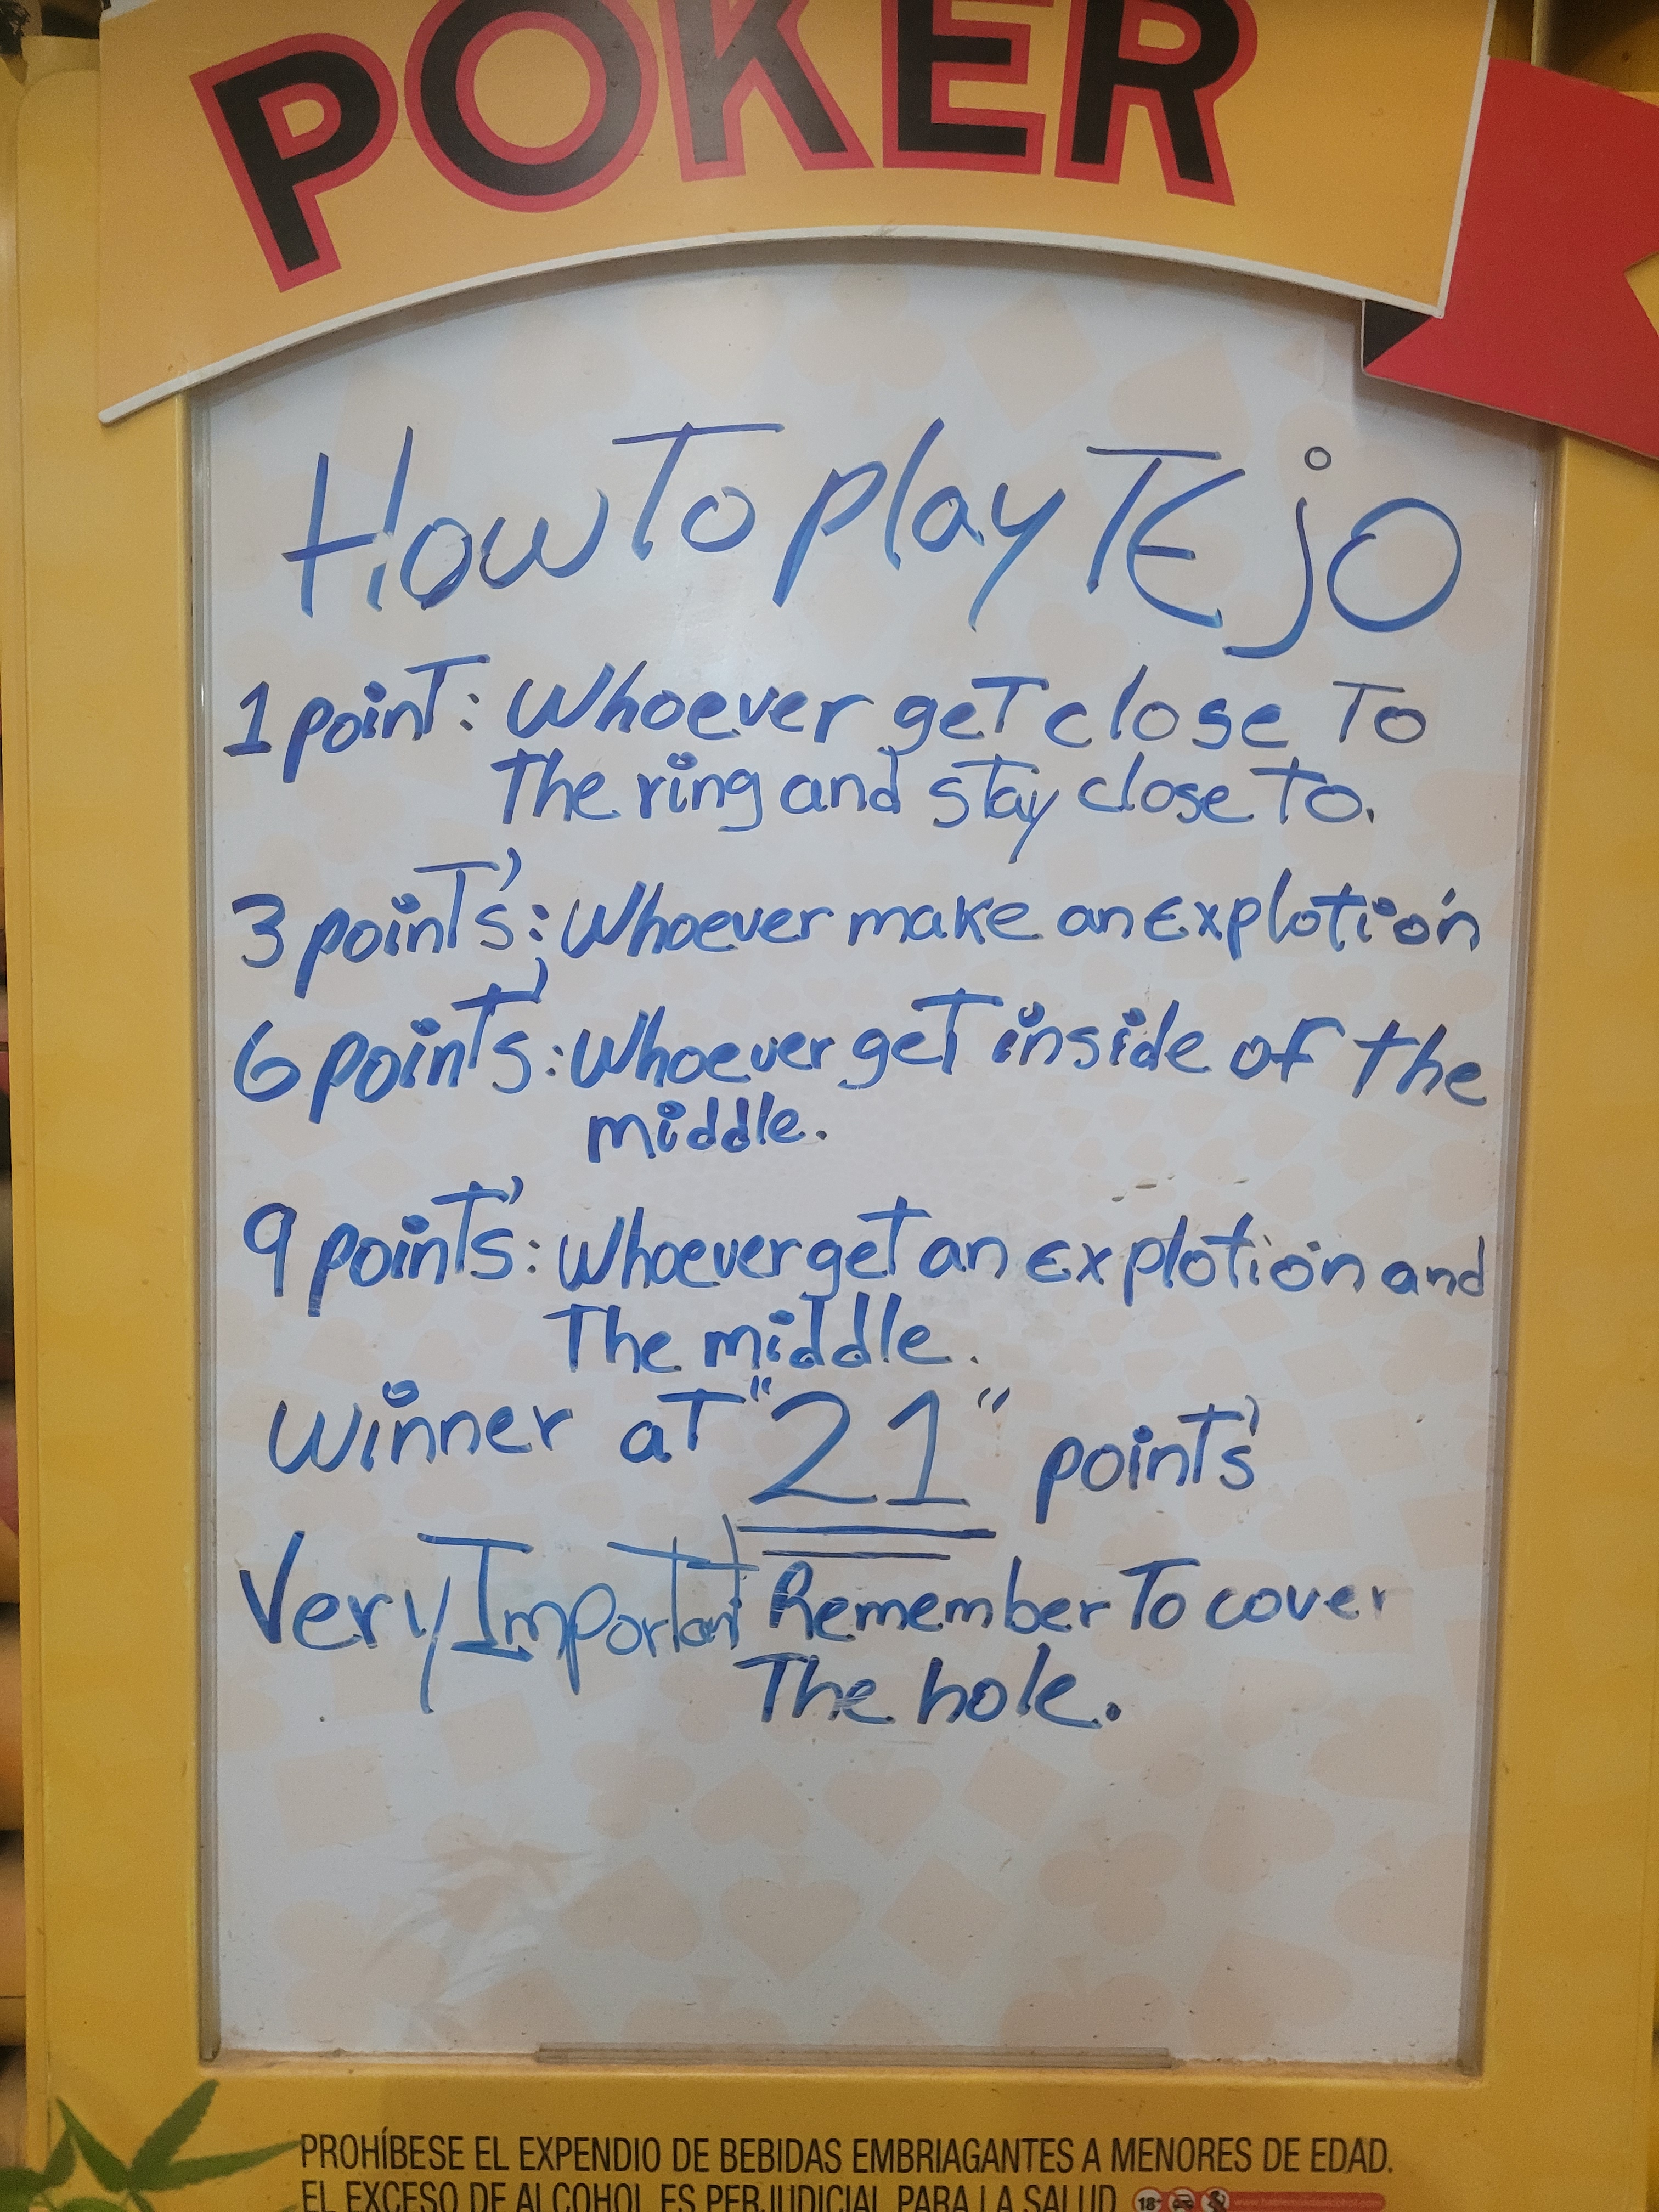 POKER
How To play TEjO
1 poinT: Whoever geT close To
The ring and sTay close To.
3 poinT's: Whoever make an Explotión
6 poinT's: Whoever geT inside of the
middle.
9 poinT's: Whoever geT an Explotion and
The middle.
Winner aT "21" poinT's
Very ImporTanT Remember To cover
The hole.
PROHÍBESE EL EXPENDIO DE BEBIDAS EMBRIAGANTES A MENORES DE EDAD.
EL EXCESO DE ALCOHOL ES PERJUDICIAL PARA LA SALUD
18+